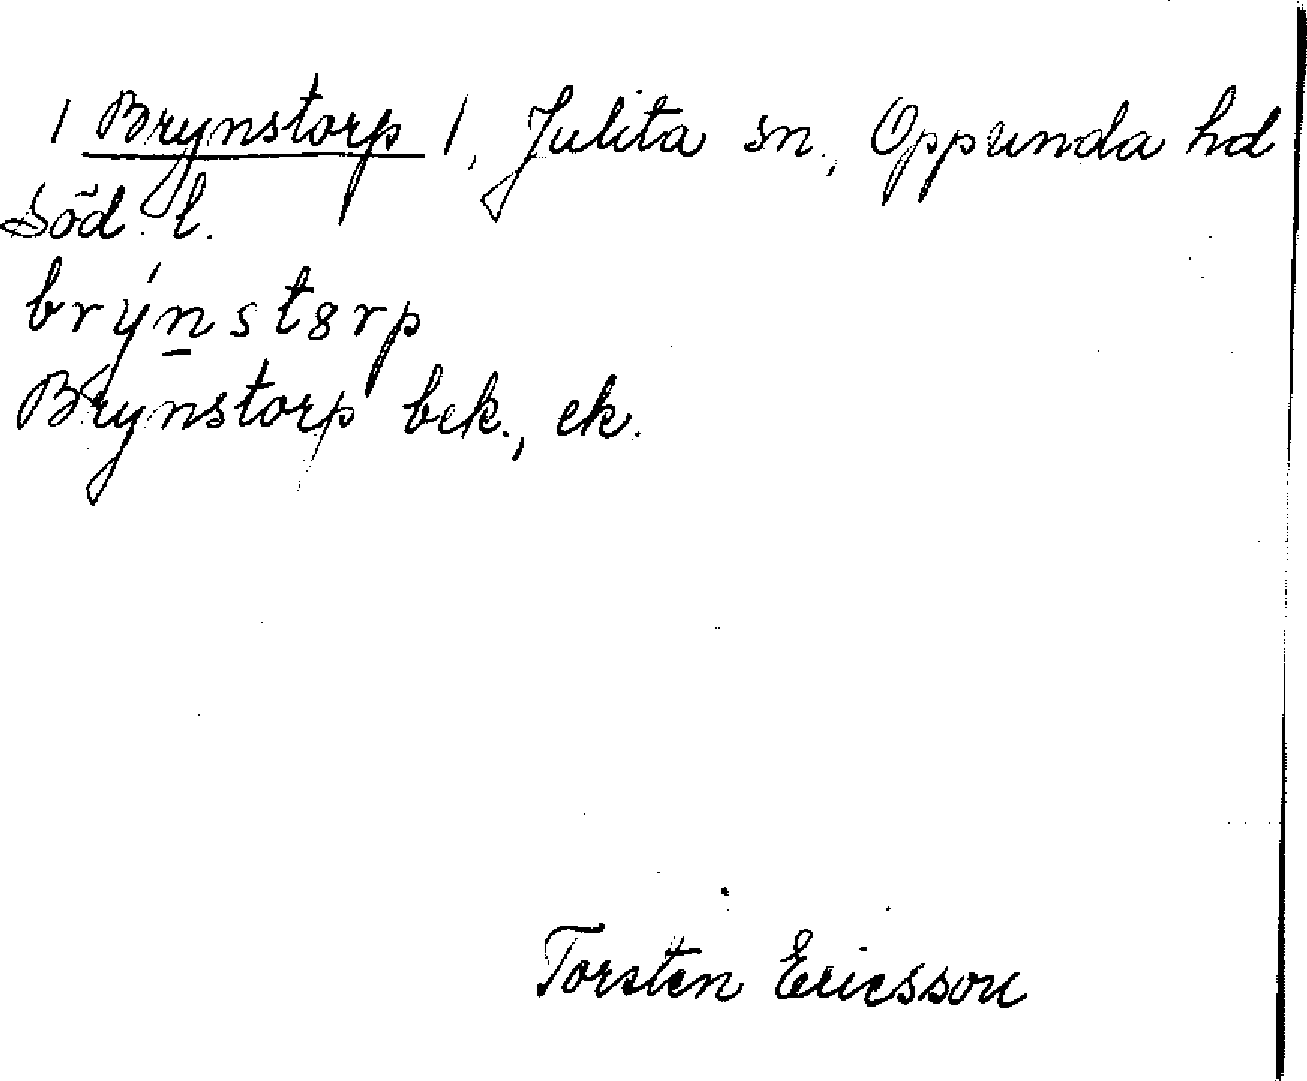 / Brynstorp /, Julita sn., Oppunda hd
Söd. l.
brýn̲st8rp
Brynstorp bek., ek.
Torsten Ericsson